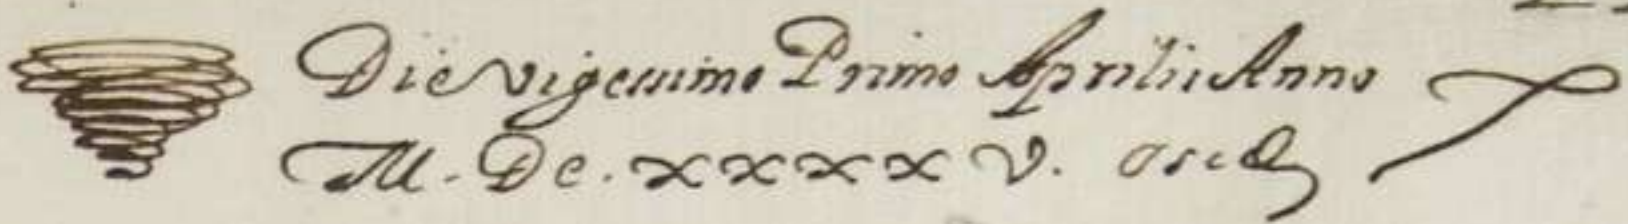 Die vigessimo Primo Aprilis Anno
M. Dc. xxxx V.